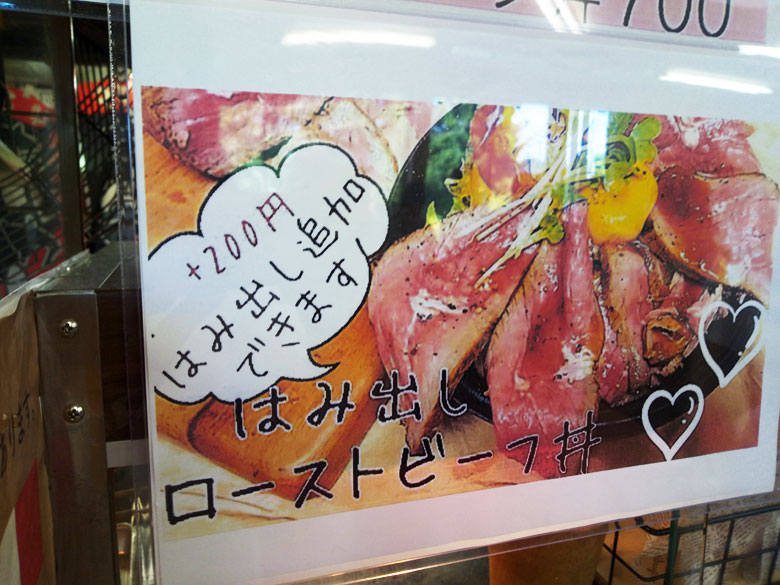 ¥700
+200円
はみ出し追加
できます!
はみ出し
ローストビーフ丼
ります。